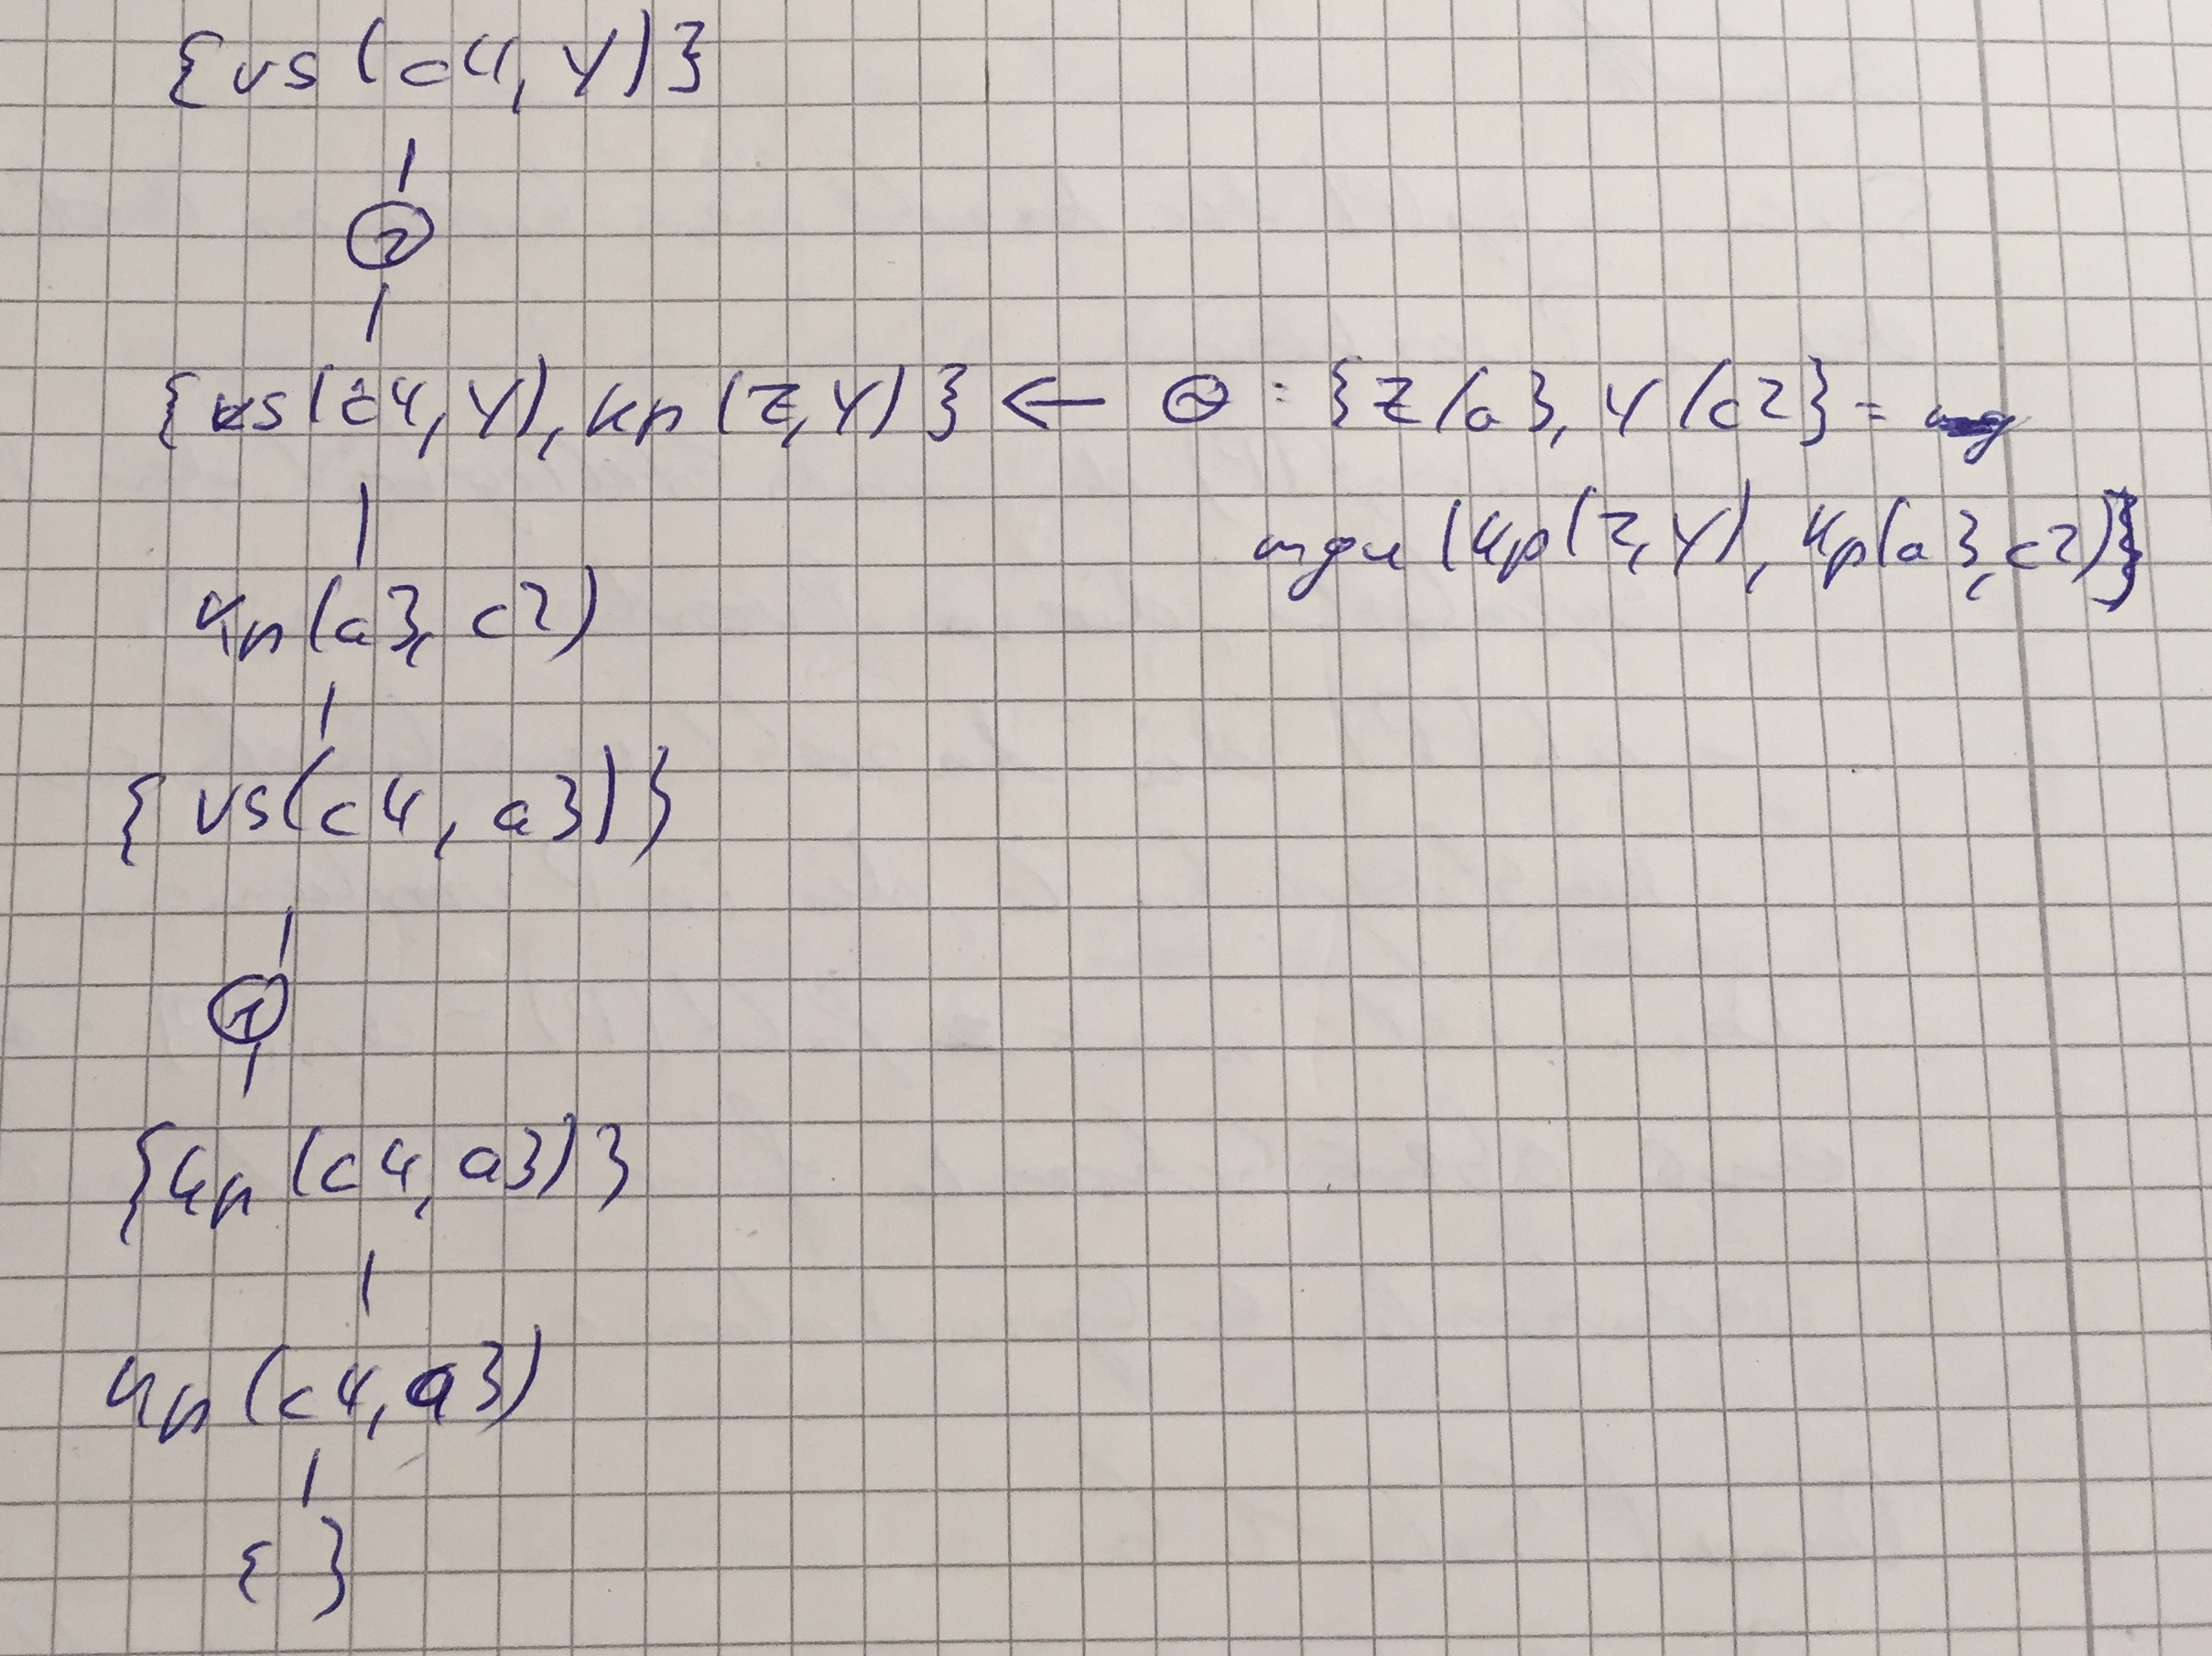 {vs(c4, Y)}
②
{vs(c4, Y), kp(Z, Y)} ← Θ : {Z/a3, Y/c2} =
mgu (kp(Z, Y), kp(a3, c2)}
kp(a3, c2)
{vs(c4, a3)}
①
{kp(c4, a3)}
kp(c4, a3)
{ }